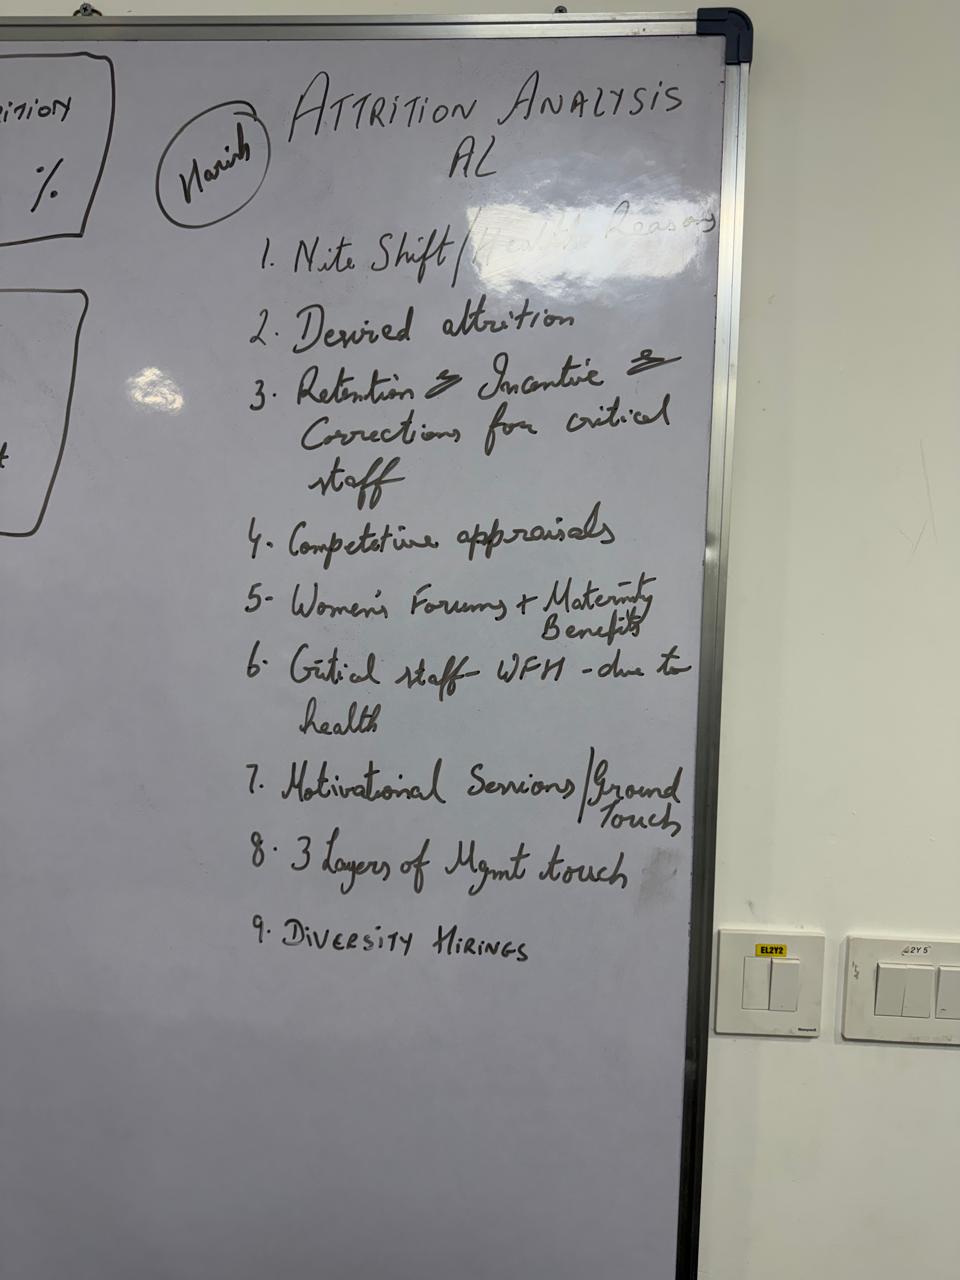 ITION
%
Harish
ATTRITION ANALYSIS
AL
1. Nite Shift/Health Reasons
2. Desired attrition
3. Retention & Incentive &
Corrections for critical
staff
4. Competetive appraisals
5- Women's Forums + Maternity
Benefits
6. Critical staff- WFH - due to
health
7. Motivational Sessions/Ground
Touch
8. 3 Layers of Mgmt touch
9. DIVERSITY HIRINGS
EL2Y2
2Y5
Honeywell